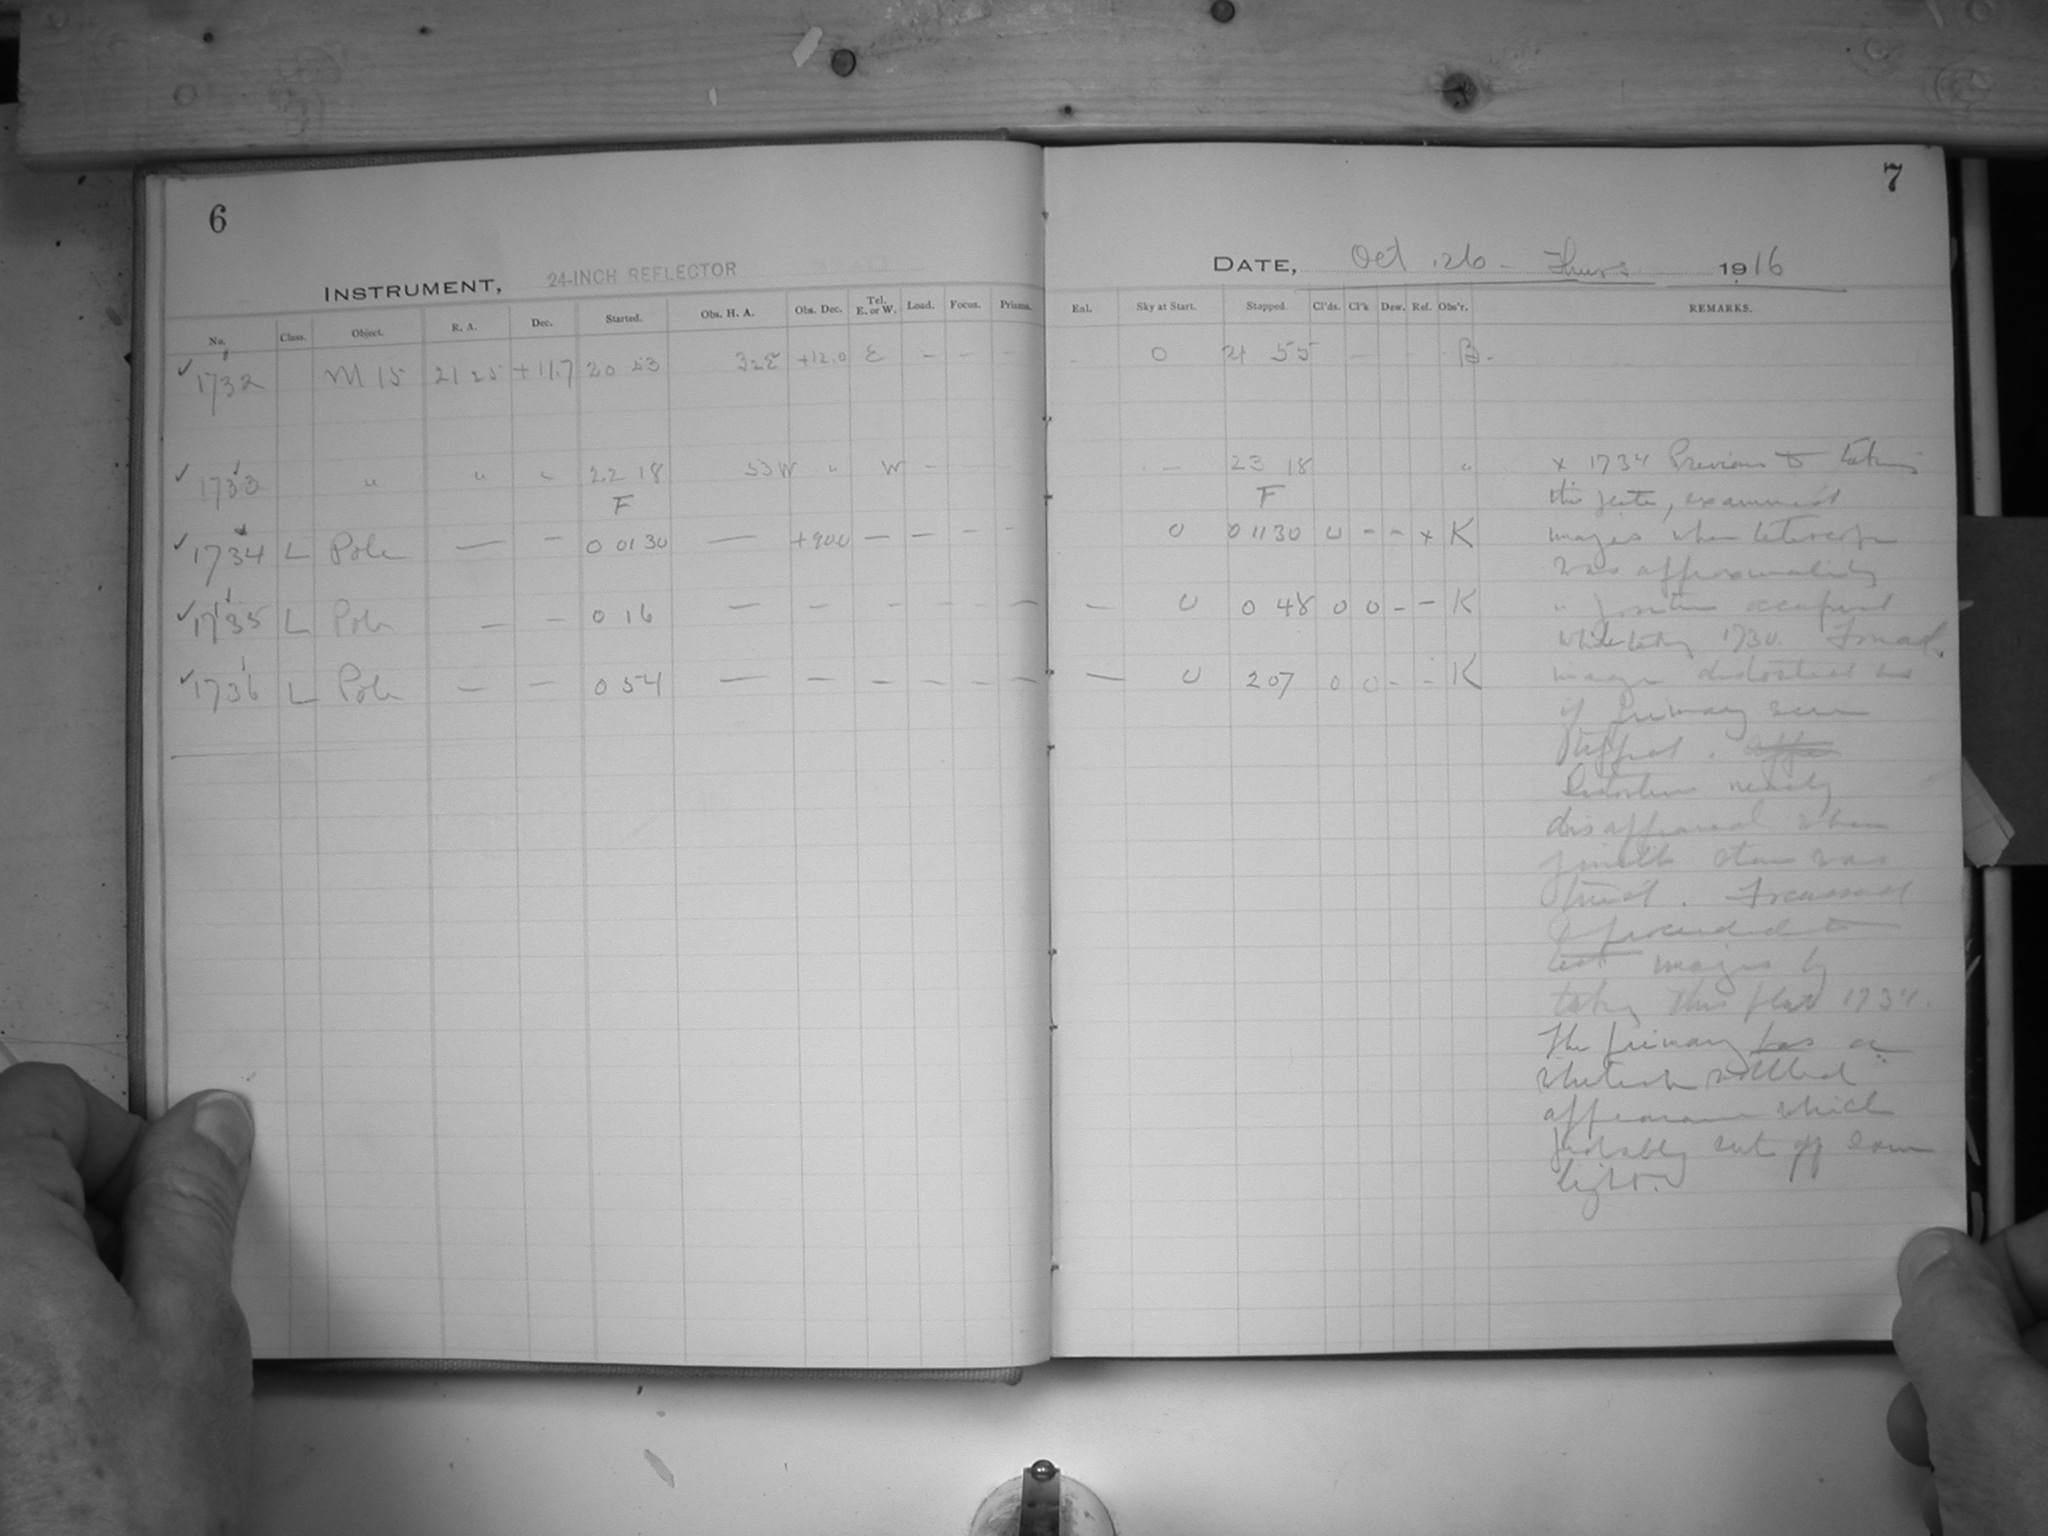 6
INSTRUMENT, 24-INCH REFLECTOR
No. Class. Object. R. A. Dec. Started. Obs. H. A. Obs. Dec. Tel. E. or W. Load. Focus. Prisms.
✓ 1732 M 15 21 25 +11.7 20 53 32E +12.0 E — — —
✓ 1733 " " " 22 18 53W " W —
F
✓ 1734 L Pole — — 0 01 30 — +90.0 — — — —
✓ 1735 L Pole — — 0 16 — — — — — —
✓ 1736 L Pole — — 0 54 — — — — — —
7
DATE, Oct. 26 – Thurs 1916
Enl. Sky at Start. Stopped. Cl'ds. Cl'k Dew. Ref. Obs'r. REMARKS.
0 21 55 — B.
— 23 18 "
F
0 0 11 30 0 - - x K
— 0 0 48 0 0 - - K
— 0 2 07 0 0 - - K
x 1734 Previous to taking
this plate, examined
images when telescope
was approximately
in position occupied
while taking 1730. Found
image distorted as
if primary were
Distortion nearly
disappeared when
was
tried. Focussed
& proceeded to
test images by
taking this plate 1734.
The primary has a
whitish mottled
appearance which
probably cuts off some
light.